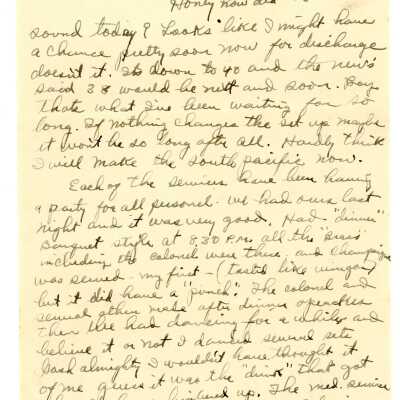 Honey how did
sound today? Looks like I might have
a chance pretty soon now for discharge
doesn't it. Its down to 40 and the news
said 38 would be next and soon. Boy
thats what I've been waiting for so
long. If nothing changes the set up maybe
it wont be so long after all. Hardly think
I will make the South Pacific now.
Each of the services have been having
a party for all personel - we had ours last
night and it was very good. Had "dinner"
Banquet style at 8:30 P.M. all the "brass"
including the colonel were there and Champaign
was served - my first - (tasted like vinegar)
but it did have a "punch." The colonel and
several others made after dinner speaches
then we had dancing for a while and
believe it or not I danced several sets
Gosh almighty I wouldn't have thought it
of me guess it was the "drink" that got
me up. The med. service